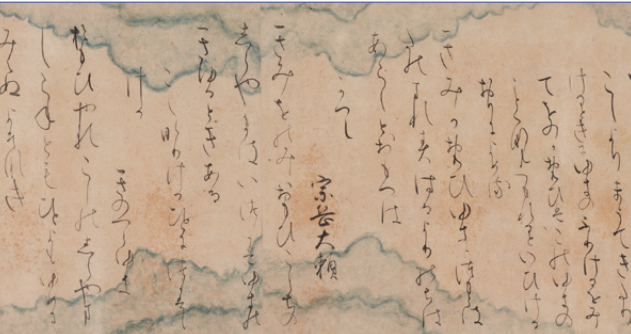 こしよりまうてきたり
けるときにゆきのふりけるをみ
てをのかおもひはこのゆきの
ことくなむつもれるといひける
おりによめる
きみかおもひゆきとつもらは
たのまれす春よりのちは
あらしとおもへは
かへし
宗岳大頼
きみをのみおもひこしちの
しらやまはいつかはゆきの
きゆるときある
こし けるひとにつかはし
ける
きのつらゆき
おもひやるこしのしらやま
しらねともひとよもゆめに